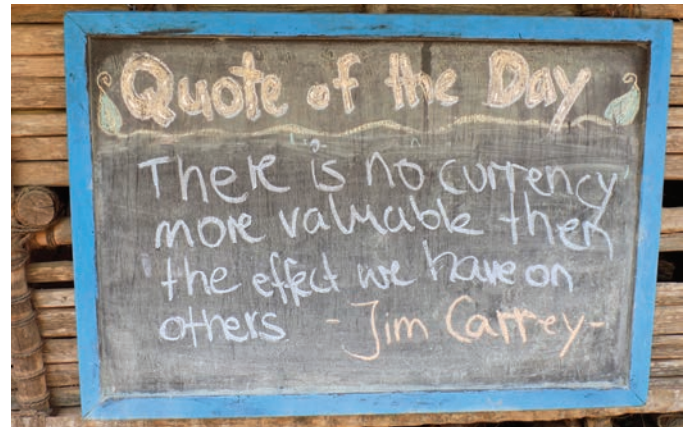 Quote of the Day
There is no currency
more valuable then
the effect we have on
others -Jim Carrey-